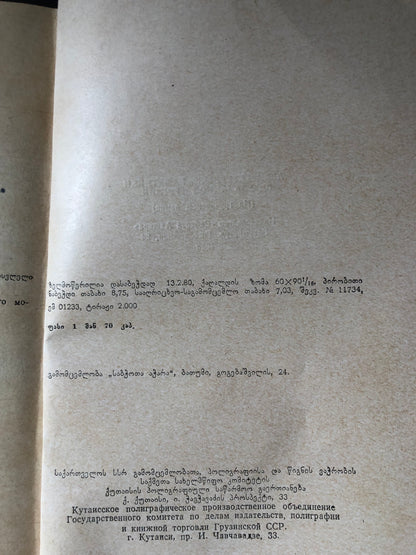 ფსელელი
го мо-
ხელმოწერილია დასაბეჭდად 13.2.80, ქაღალდის ზომა 60×90¹/₁₆, პირობითი
ნაბეჭდი თაბახი 8,75, სააღრიცხვო-საგამომცემლო თაბახი 7,03, შეკვ. № 11734,
ემ 01233, ტირაჟი 2.000
ფასი 1 მან 70 კაპ.
გამომცემლობა „საბჭოთა აჭარა“, ბათუმი, გოგებაშვილის, 24.
საქართველოს სსრ გამომცემლობათა, პოლიგრაფიისა და წიგნის ვაჭრობის
საქმეთა სახელმწიფო კომიტეტის
ქუთაისის პოლიგრაფიული საწარმოო გაერთიანება
ქ. ქუთაისი, ი. ჭავჭავაძის პროსპექტი, 33
Кутаисское полиграфическое производственное объединение
Государственного комитета по делам издательств, полиграфии
и книжной торговли Грузинской ССР.
г. Кутаиси, пр. И. Чавчавадзе, 33.